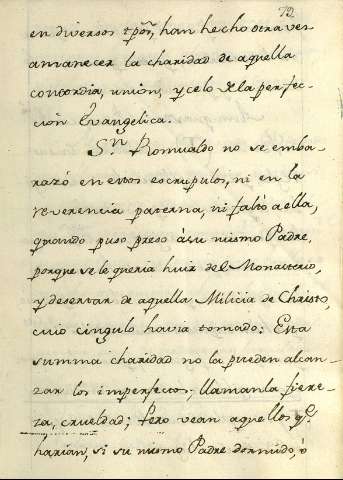 72
en diversos tpos, han hecho otra ves
amanecer la charidad de aquella
concordia, union, y celo de la perfec-
cion Evangelica.
Sn. Romualdo no se emba-
razó en estos escrupulos, ni en la
reverencia paterna, ni faltò a ella,
quando puso preso à su mismo Padre,
porque se le queria huir del Monasterio,
y desertar de aquella Milicia de Christo,
cuio cingulo havia tomado: Esta
summa charidad no la pueden alcan-
zar los imperfectos, llamanla fiere-
za, crueldad; Pero vean aquellos qe.
harian, si su mismo Padre dormido, ò